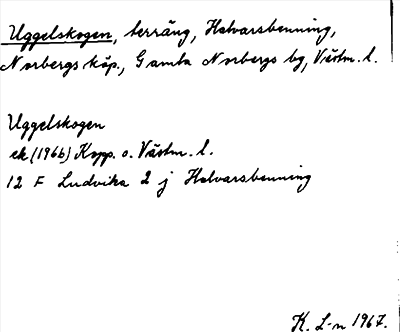 Uggelskogen, terräng, Halvarsbenning,
Norbergs köp., Gamla Norbergs by, Västm. l.
Uggelskogen
ek (1966) Kopp. o. Västm. l.
12 F Ludvika 2 j Halvarsbenning
K. L-n 1967.